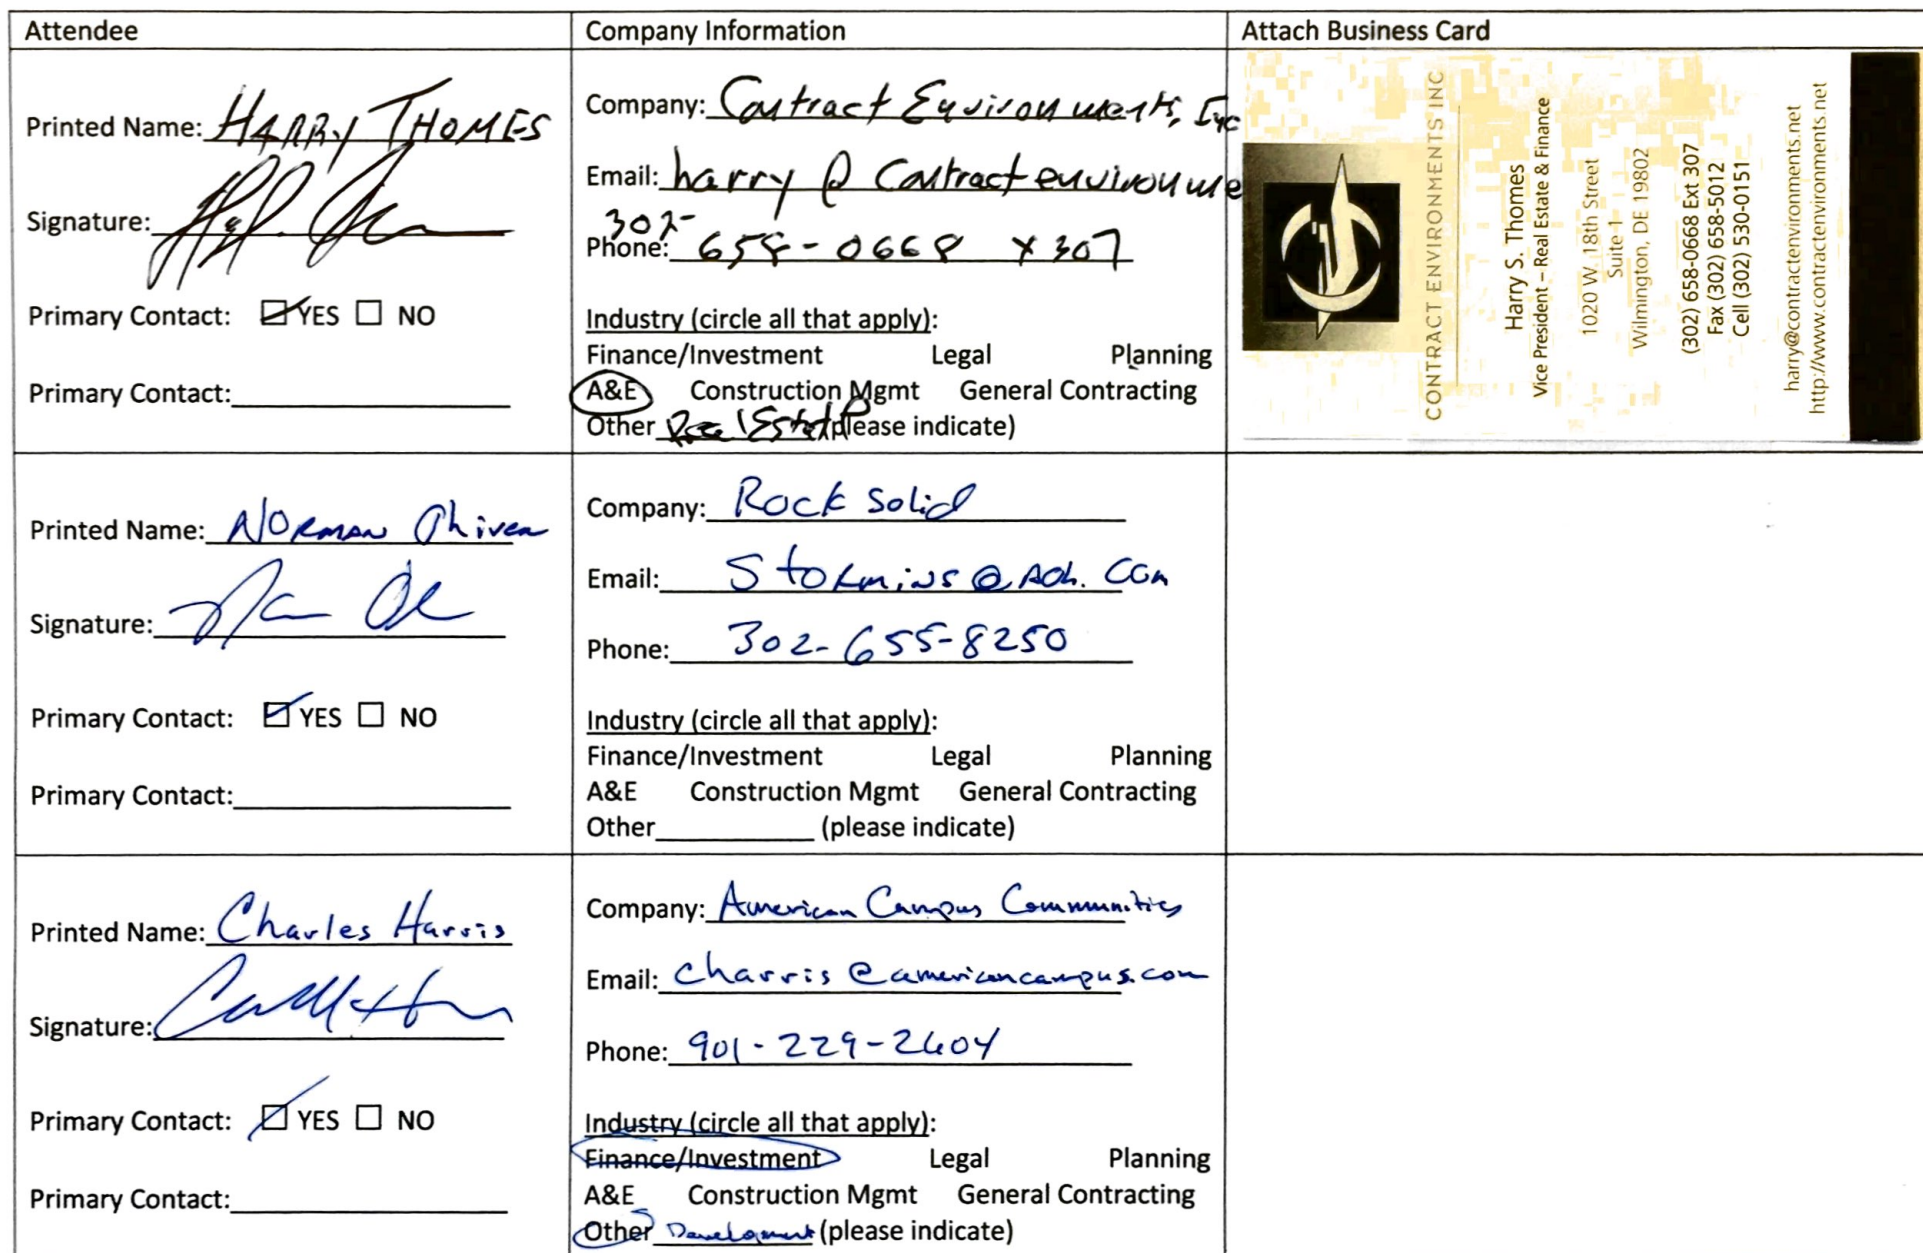 Attendee
Company Information
Attach Business Card
Printed Name: HARRY THOMES
Signature:
Primary Contact: YES NO
Primary Contact:
Company: Contract Environments, Inc
Email: harry @ Contractenvironme
302-
Phone: 658-0668 x307
Industry (circle all that apply):
Finance/Investment Legal Planning
A&E Construction Mgmt General Contracting
Other Real Estate (please indicate)
CONTRACT ENVIRONMENTS INC
Harry S. Thomes
Vice President – Real Estate & Finance
1020 W. 18th Street
Suite 1
Wilmington, DE 19802
(302) 658-0668 Ext 307
Fax (302) 658-5012
Cell (302) 530-0151
harry@contractenvironments.net
http://www.contractenvironments.net
Printed Name: NORMAN
Signature:
Primary Contact: YES NO
Primary Contact:
Company: Rock Solid
Email:
Phone: 302-655-8250
Industry (circle all that apply):
Finance/Investment Legal Planning
A&E Construction Mgmt General Contracting
Other (please indicate)
Printed Name: Charles Harris
Signature:
Primary Contact: YES NO
Primary Contact:
Company: American Campus Communities
Email: charris@americancampus.com
Phone: 901-229-2604
Industry (circle all that apply):
Finance/Investment Legal Planning
A&E Construction Mgmt General Contracting
Other Development (please indicate)